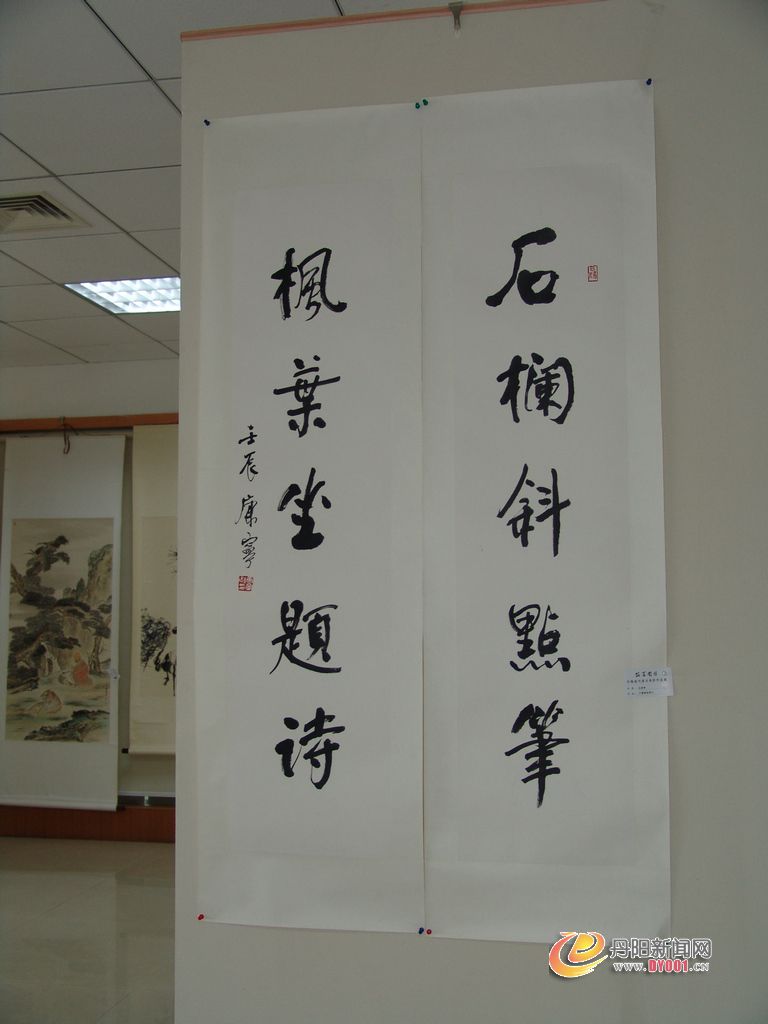 石欄斜點筆
楓葉坐題詩
壬辰 康寧
丹阳新闻网
WWW.DY001.CN